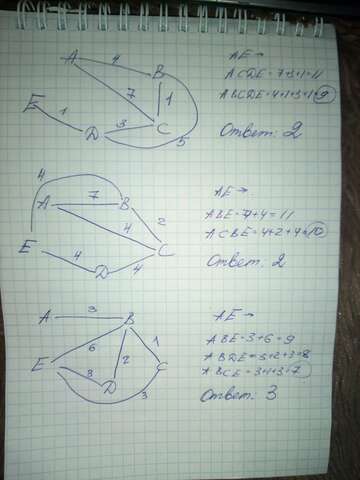 A 4 B
7 1
E 1 D 3 C 5
AE →
ACDE = 7+3+1=11
ABCDE = 4+1+3+1=9
Ответ: 2
4
A 7 B 2
4
E 4 D 4 C
AE →
ABE = 7+4 = 11
ACBE = 4+2+4=10
Ответ: 2
A 3 B
6 2 1
E 3 D C
3
AE →
ABE = 3+6 = 9
ABDE = 3+2+3=8
ABCE = 3+1+3=7
Ответ: 3